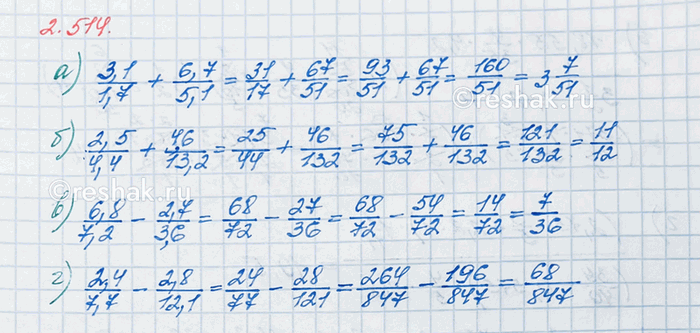 2.514.
а) 3,1/1,7 + 6,7/5,1 = 31/17 + 67/51 = 93/51 + 67/51 = 160/51 = 3 7/51
б) 2,5/4,4 + 4,6/13,2 = 25/44 + 46/132 = 75/132 + 46/132 = 121/132 = 11/12
в) 6,8/7,2 - 2,7/3,6 = 68/72 - 27/36 = 68/72 - 54/72 = 14/72 = 7/36
г) 2,4/7,7 - 2,8/12,1 = 24/77 - 28/121 = 264/847 - 196/847 = 68/847
©reshak.ru
©reshak.ru